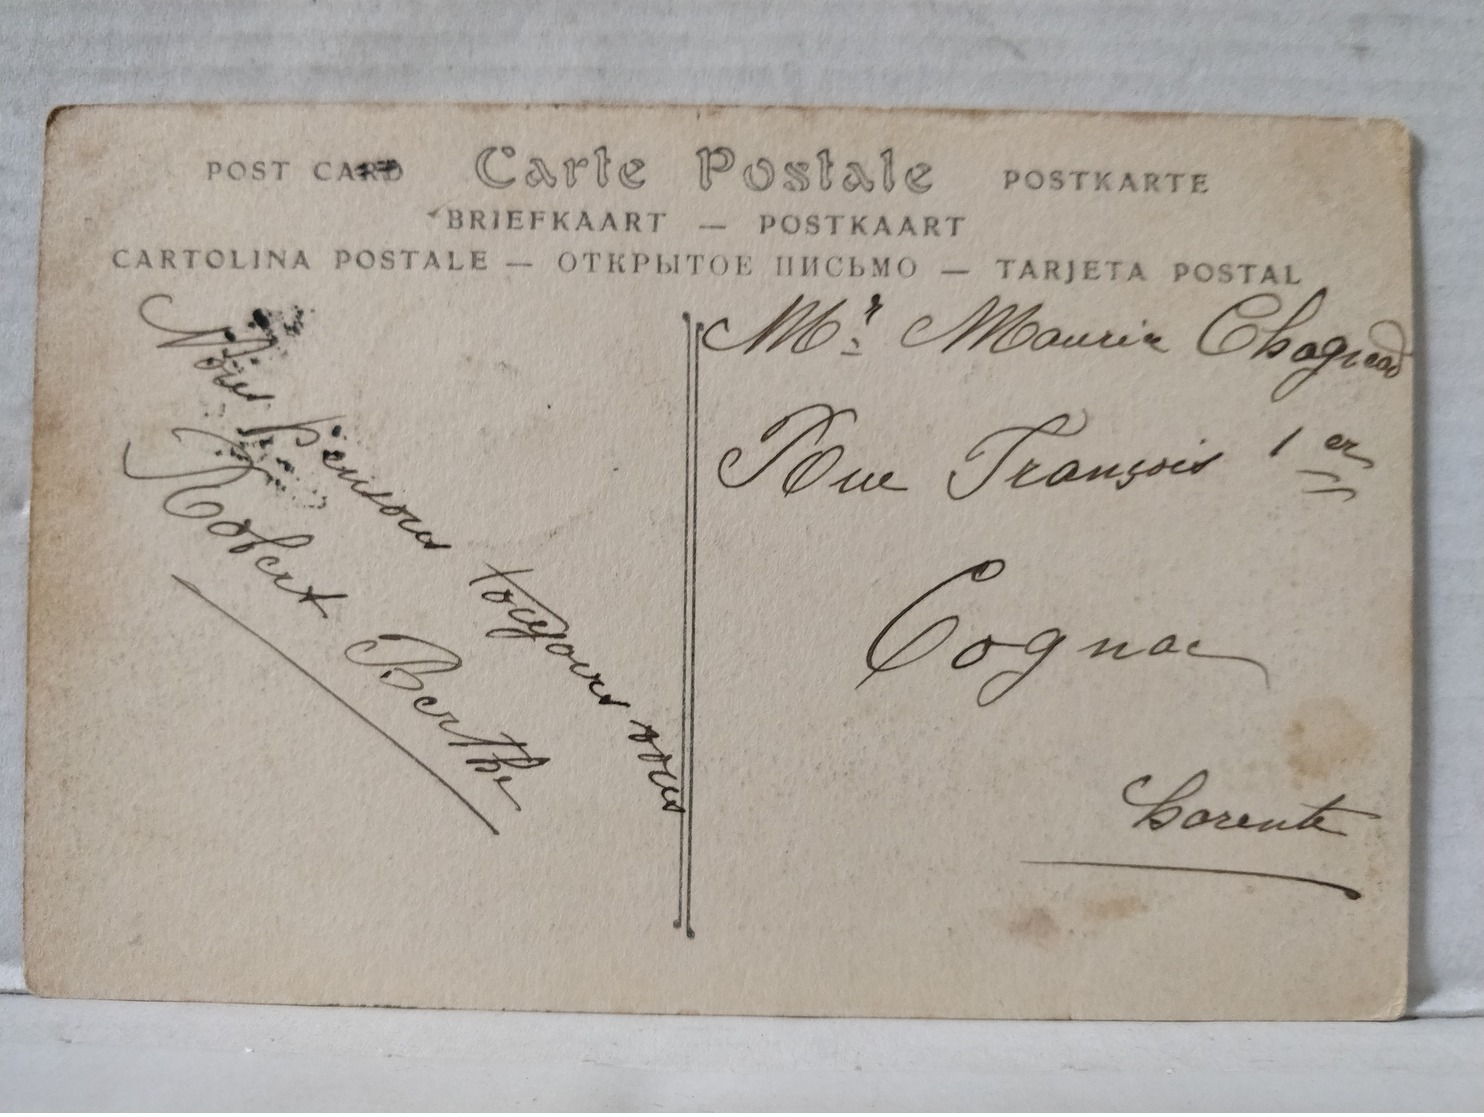 POST CARD Carte Postale POSTKARTE
BRIEFKAART — POSTKAART
CARTOLINA POSTALE — ОТКРЫТОЕ ПИСЬМО — TARJETA POSTAL
Nous pensons toujours vous
Robert Berthe
Mr Maurice
Rue François 1er
Cognac
Charente